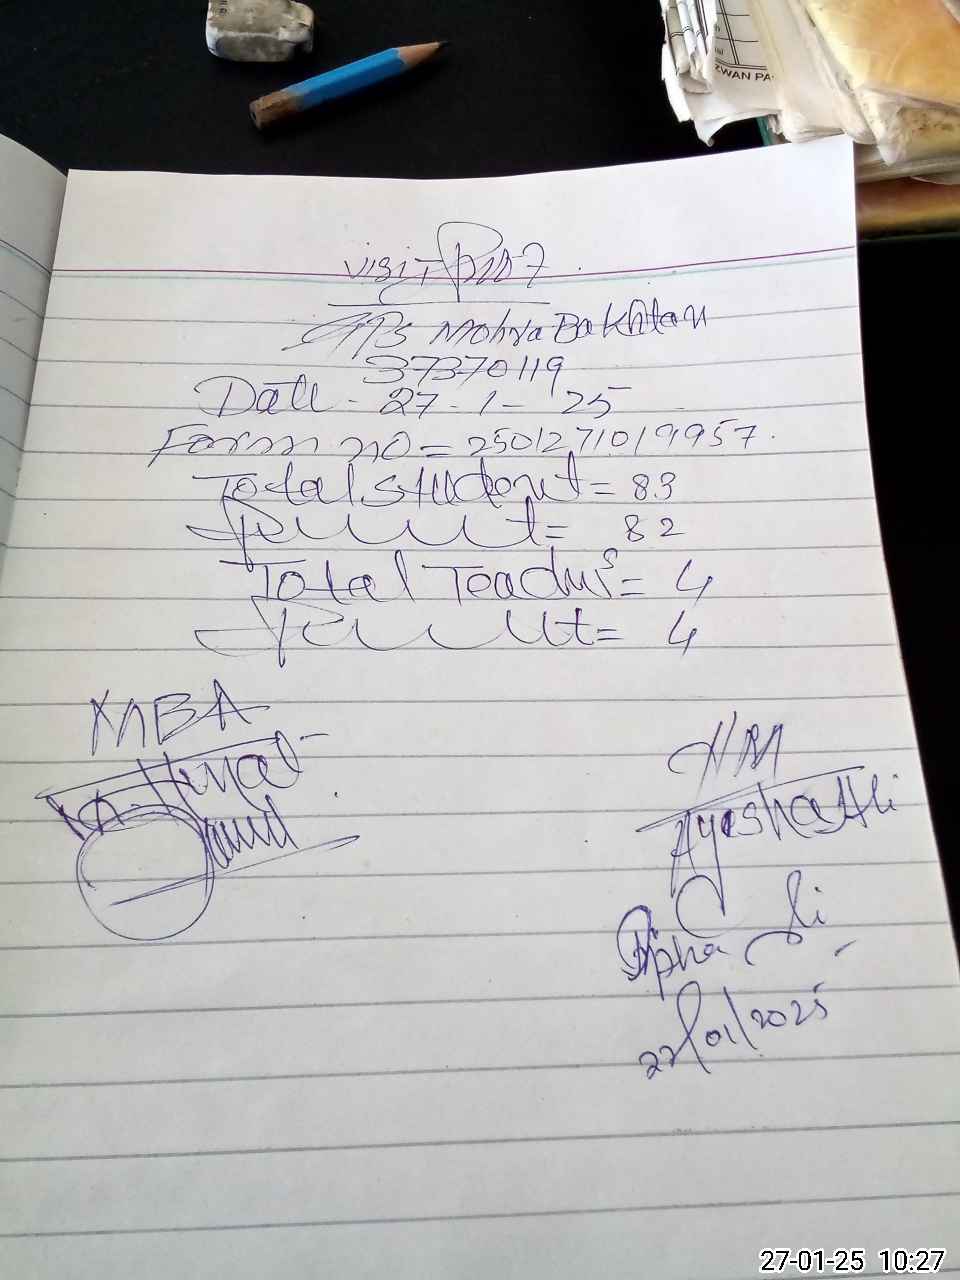 ZWAN PA
Visit
GPS Mohra Bakhtan
37370119
Date - 27-1-25
Form no = 2501271019957.
Total student = 83
Present = 82
Total Teachers = 4
Present = 4
HM
Ayesha Ali
27/01/2025
27-01-25 10:27